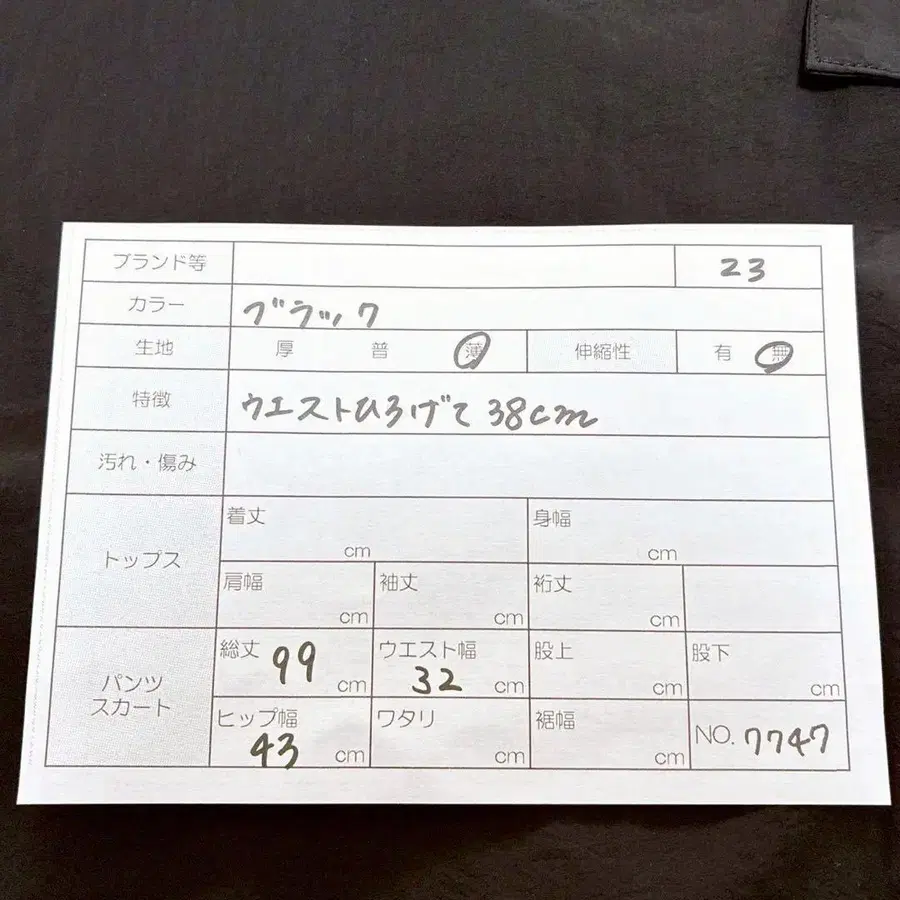 ブランド等 23
カラー ブラック
生地 厚 普 薄 伸縮性 有 無
特徴 ウエストひろげて 38cm
汚れ・傷み
トップス
着丈 cm 身幅 cm
肩幅 cm 袖丈 cm 裄丈 cm
パンツ
スカート
総丈 99 cm ウエスト幅 32 cm 股上 cm 股下 cm
ヒップ幅 43 cm ワタリ cm 裾幅 cm NO. 7747